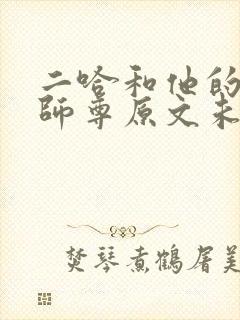 二哈和他的
師尊原文未
焚琴煮鶴屠美